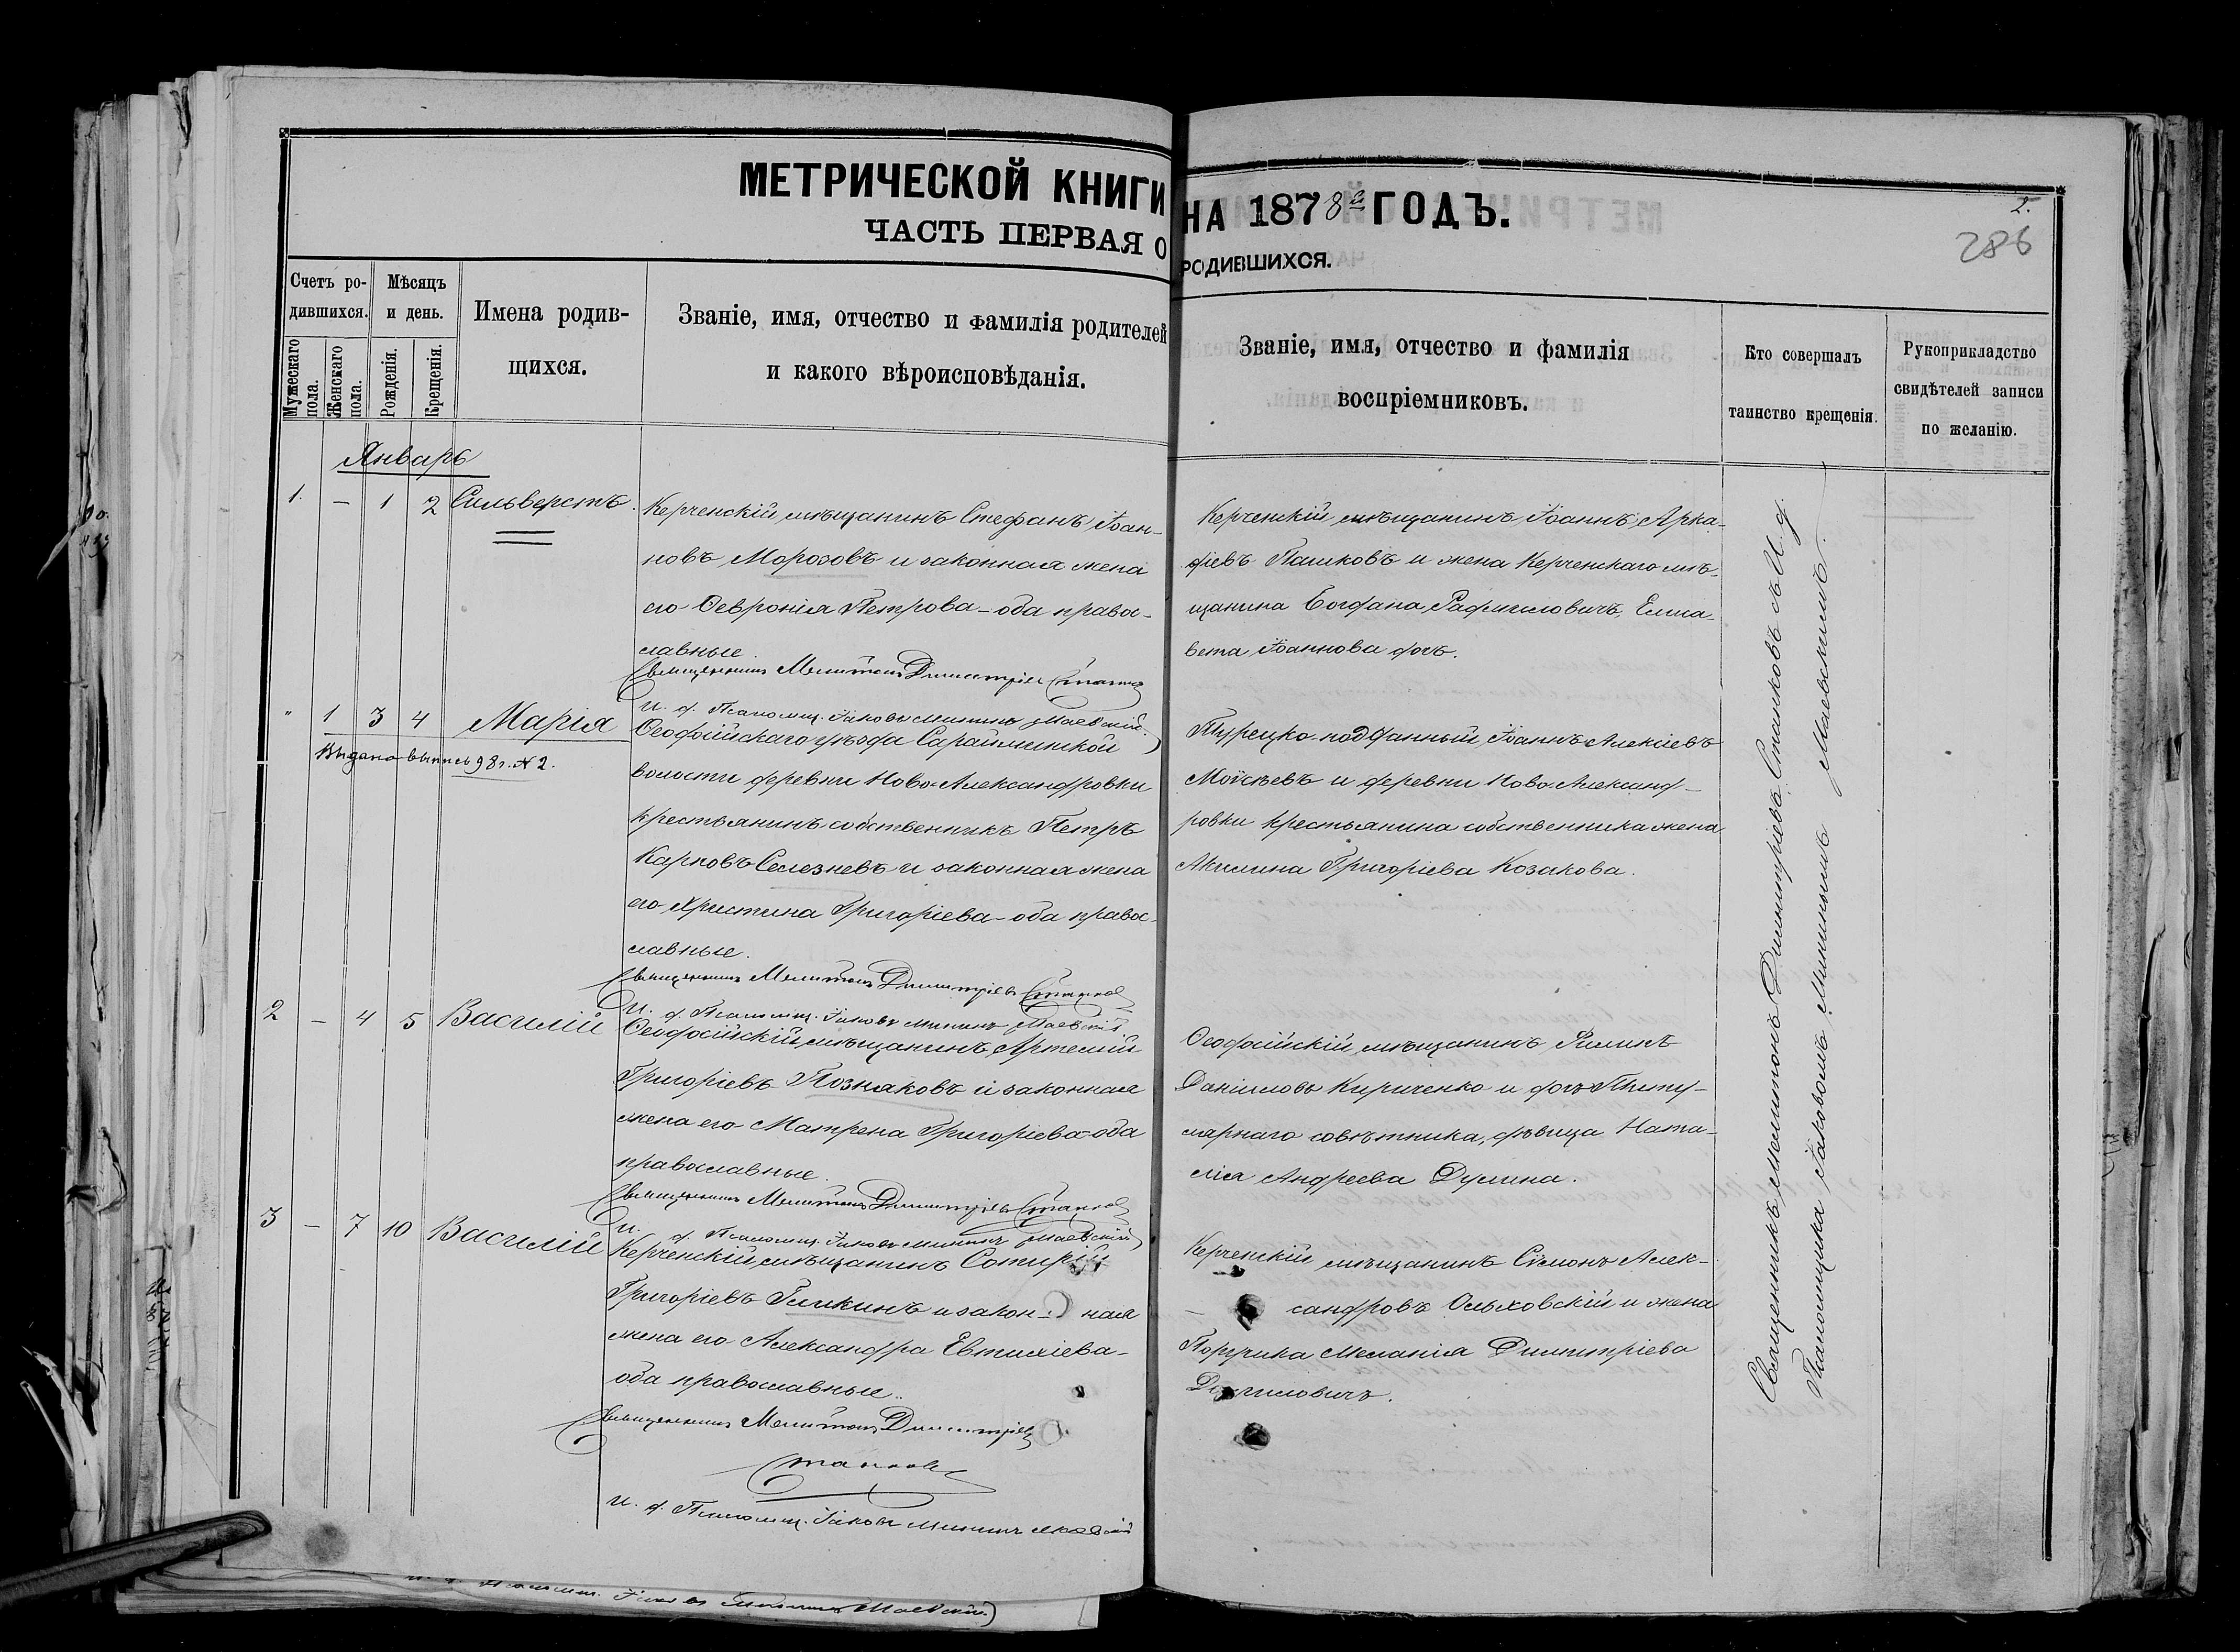 МЕТРИЧЕСКОЙ КНИГИ НА 1878й ГОДЪ.
ЧАСТЬ ПЕРВАЯ О РОДИВШИХСЯ.
2.
286
Счетъ ро-
дившихся.
Мужескаго пола.
Женскаго пола.
Мѣсяцъ
и день.
Рожденія.
Крещенія.
Имена родив-
щихся.
Званіе, имя, отчество и фамилія родителей
и какого вѣроисповѣданія.
Званіе, имя, отчество и фамилія
воспріемниковъ.
Кто совершалъ
таинство крещенія.
Рукоприкладство
свидѣтелей записи
по желанію.
Январь
1. – 1 2 Сильверстъ.
Керченскій мѣщанинъ Стефанъ Іоан-
новъ Морозовъ и законная жена
его Ѳевронія Петрова – оба правос-
славные.
Священникъ Мелитонъ Димитріевъ Станковъ
И. д. Псаломщ. Іаковъ Мининъ Маевскій.
Керченскій мѣщанинъ Іоаннъ Арка-
діевъ Пашковъ и жена Керченскаго мѣ-
щанина Богдана Рафаиловичъ, Елиса-
вета Іоаннова дочь.
" 1 3 4 Марія
Выдана выпись 98 г. № 2.
Ѳеодосійскаго уѣзда Сарайминской
волости деревни Ново-Александровки
крестьянинъ собственникъ Петръ
Карповъ Селезневъ и законная жена
его Христина Григоріева – оба правос-
славные.
Священникъ Мелитонъ Димитріевъ Станковъ
И. д. Псаломщ. Іаковъ Мининъ Маевскій
Турецко-подданный Іоаннъ Алексіевъ
Моѵсѣевъ и деревни Ново-Александ-
ровки крестьянина собственника жена
Акилина Григоріева Козакова.
2 – 4 5 Василій
Ѳеодосійскій мѣщанинъ Артемій
Григоріевъ Позняковъ и законная
жена его Матрена Григоріева – оба
православные.
Священникъ Мелитонъ Димитріевъ Станковъ
И. д. Псаломщ. Іаковъ Мининъ Маевскій
Ѳеодосійскій мѣщанинъ Филипъ
Даніиловъ Кириченко и дочь Титу-
лярнаго совѣтника, дѣвица Ната-
лія Андреева Дулина.
3 – 7 10 Василій
Керченскій мѣщанинъ Сотирій
Григоріевъ Гинкинъ и закон- ная
жена его Александра Евтихіева –
оба православные.
Священникъ Мелитонъ Димитріевъ
Станковъ
И. д. Псаломщ. Іаковъ Мининъ Маевскій
Керченскій мѣщанинъ Сѵмонъ Алек-
сандровъ Ольховскій и жена
Поручика Меланія Димитріева
Священникъ Мелитонъ Димитріевъ Станковъ съ И. д.
Псаломщика Іаковомъ Мининымъ Маевскимъ.
Іаковъ Мининъ Маевскій